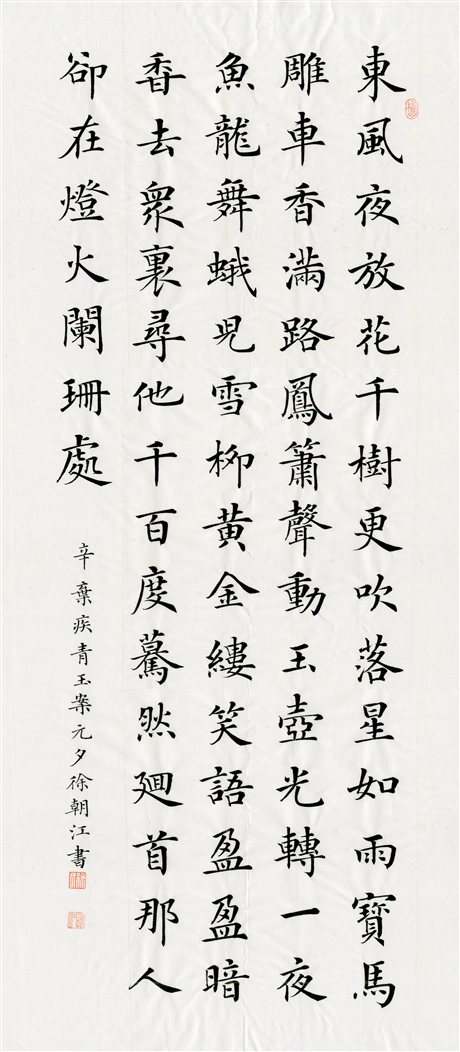 東風夜放花千樹更吹落星如雨寶馬
雕車香滿路鳳簫聲動玉壺光轉一夜
魚龍舞蛾兒雪柳黃金縷笑語盈盈暗
香去衆裏尋他千百度驀然廻首那人
卻在燈火闌珊處
辛棄疾青玉案元夕徐朝江書